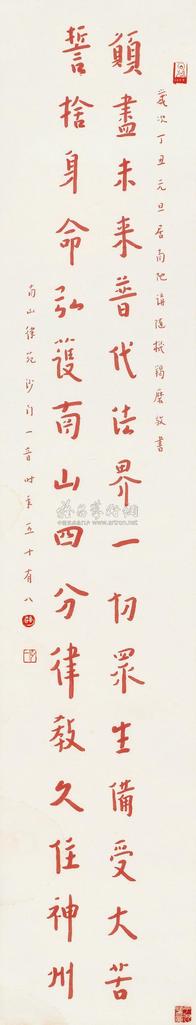 歲次丁丑元旦居南陀講隨機羯磨敬書
願盡未来普代法界一切眾生備受大苦
誓捨身命弘護南山四分律教久住神州
南山律苑沙門一音時年五十有八